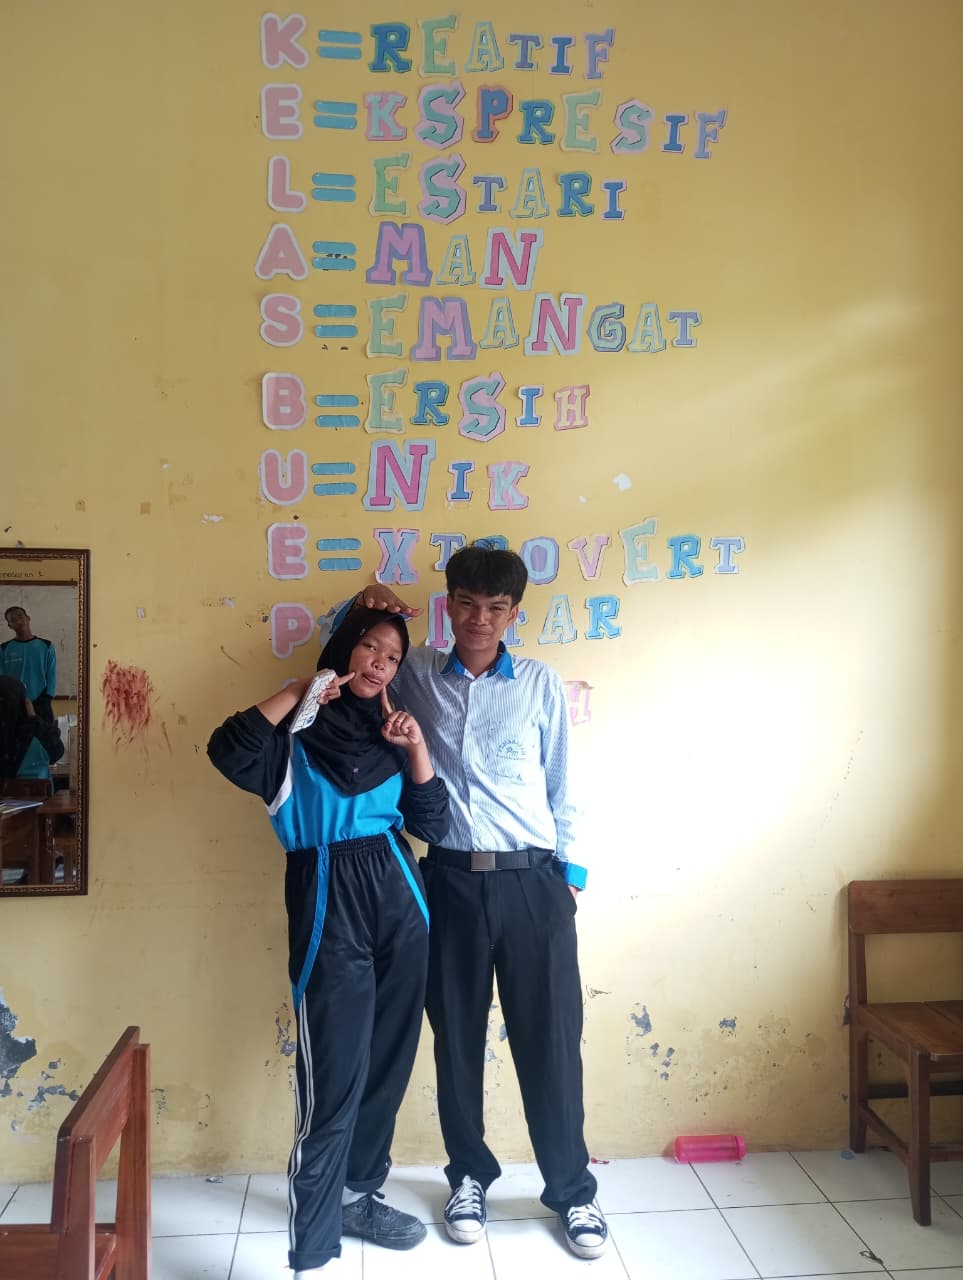 K=REATIF
E=KSPRESIF
L=ESTARI
A=MAN
S=EMANGAT
B=ERSIH
U=NIK
E=XTROVERT
P NTAR
H